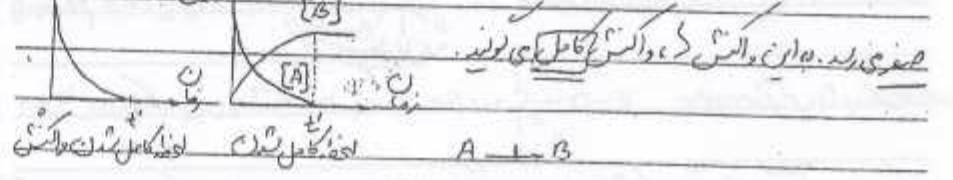 [B]
صفر می‌رسد. به این واکنش‌ها، واکنش کامل می‌گویند.
[A]
زمان
زمان
t'
t'
لحظه کامل شدن واکنش
لحظه کامل شدن
A → B